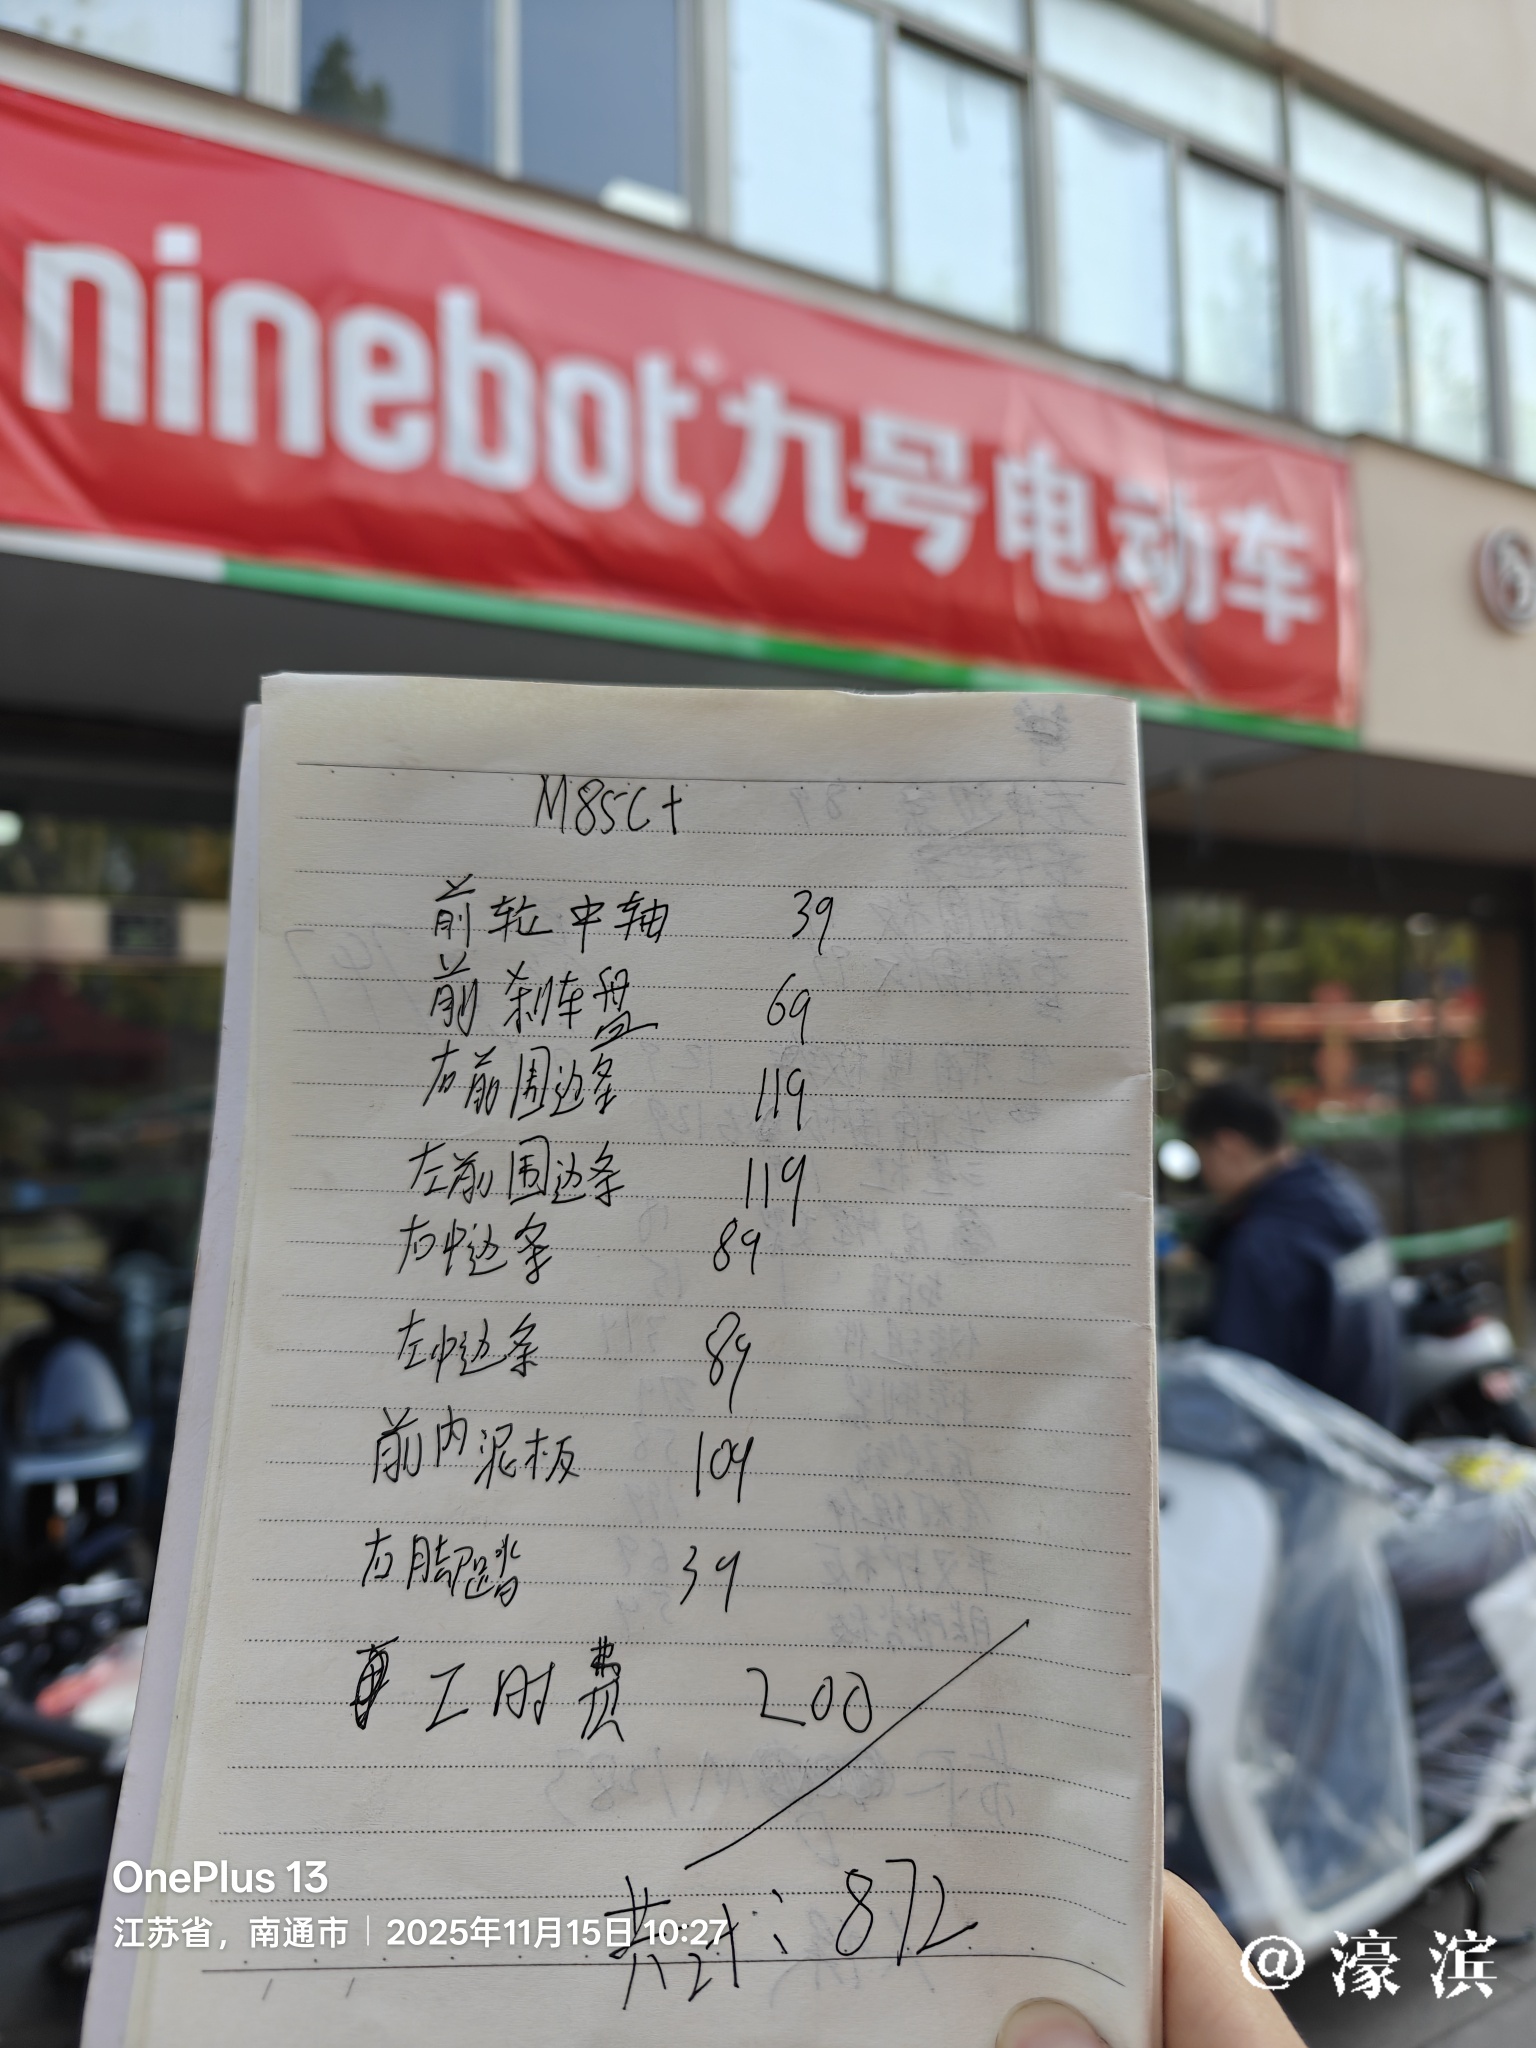 ninebot 九号电动车
M85C+
前轮中轴 39
前刹车盘 69
右前围边条 119
左前围边条 119
右中边条 89
左中边条 89
前内泥板 109
右脚踏 39
工时费 200
共计: 872
OnePlus 13
江苏省，南通市｜2025年11月15日 10:27
@濠滨